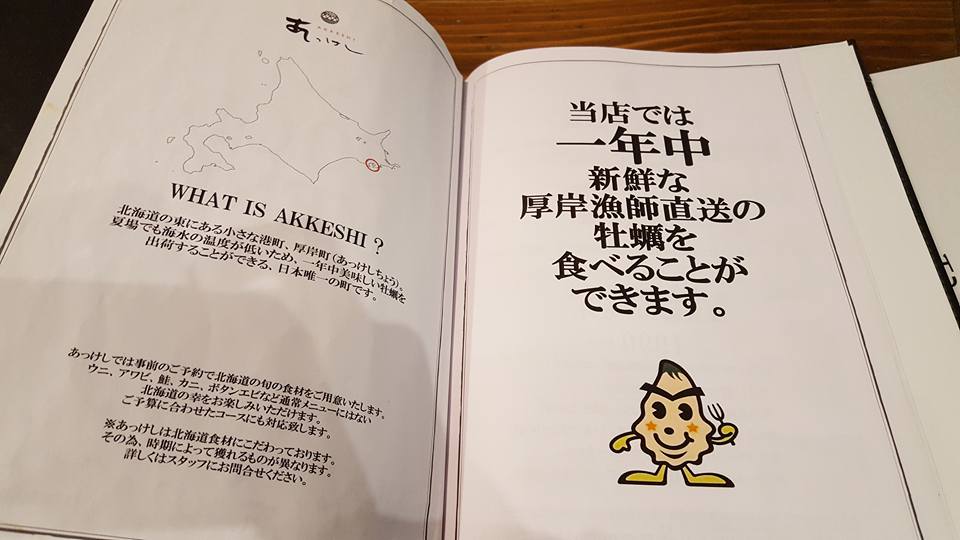 AKKESHI
あっけし
WHAT IS AKKESHI ?
北海道の東にある小さな港町、厚岸町（あっけしちょう）。
夏場でも海水の温度が低いため、一年中美味しい牡蠣を
出荷することができる、日本唯一の町です。
あっけしでは事前のご予約で北海道の旬の食材をご用意いたします。
ウニ、アワビ、鮭、カニ、ボタンエビなど通常メニューにはない
北海道の幸をお楽しみいただけます。
ご予算に合わせたコースにも対応致します。
※あっけしは北海道食材にこだわっております。
その為、時期によって獲れるものが異なります。
詳しくはスタッフにお問合せください。
当店では
一年中
新鮮な
厚岸漁師直送の
牡蠣を
食べることが
できます。